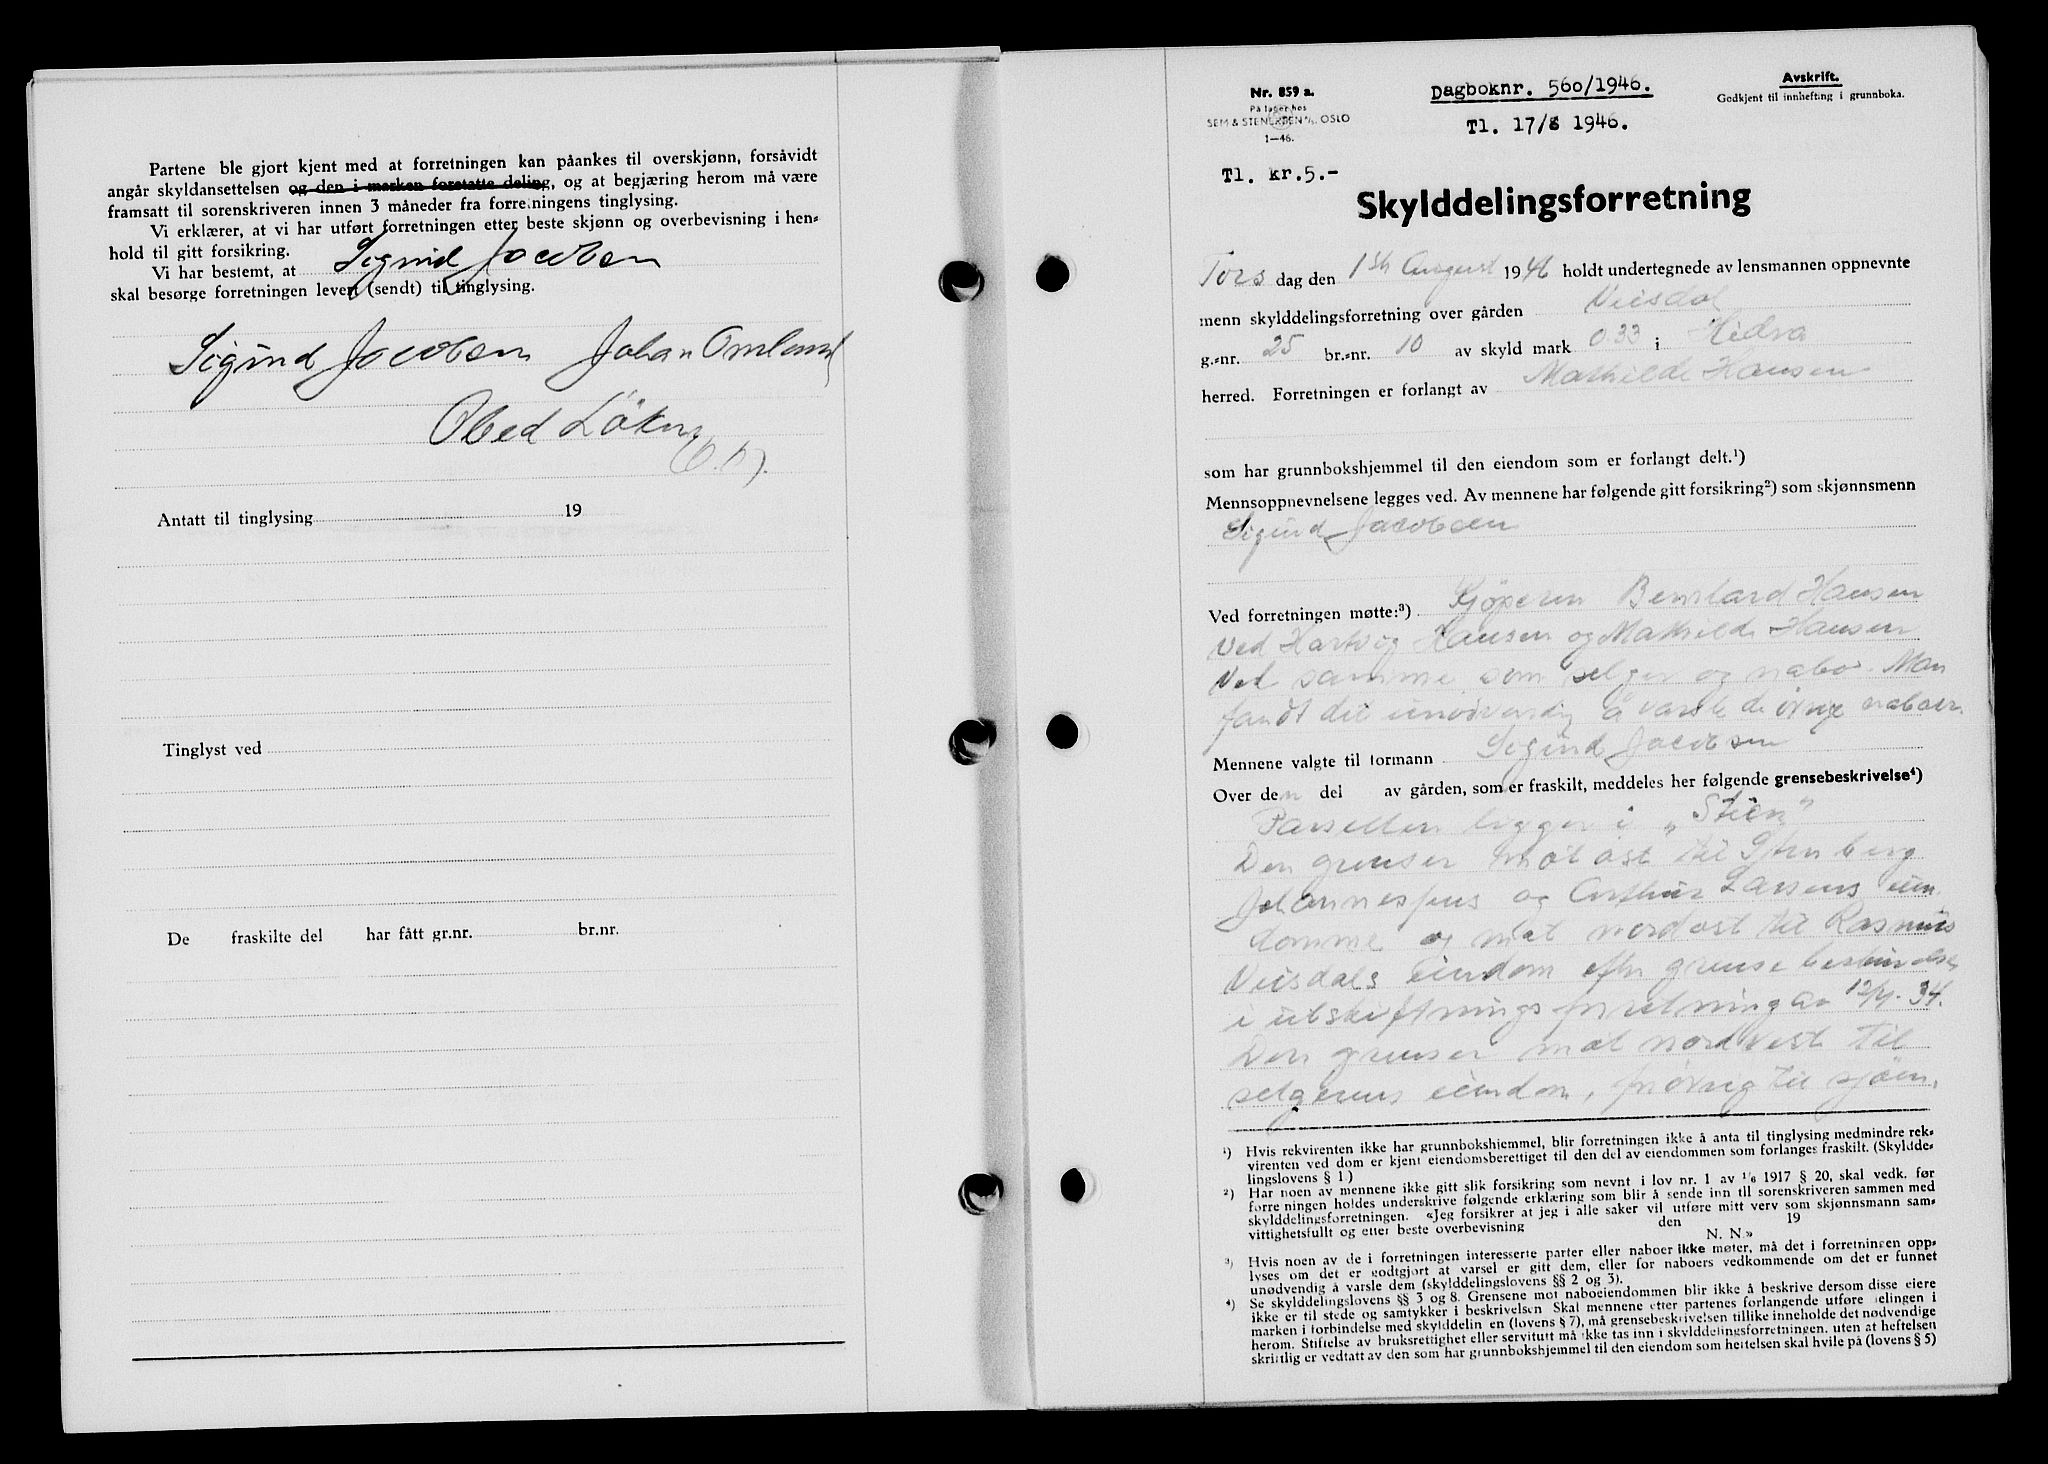 Partene ble gjort kjent med at forretningen kan påankes til overskjønn, forsåvidt
angår skyldansettelsen og den i marken foretatte deling, og at begjæring herom må være
framsatt til sorenskriveren innen 3 måneder fra forretningens tinglysing.
Vi erklærer, at vi har utført forretningen etter beste skjønn og overbevisning i hen=
hold til gitt forsikring.
Vi har bestemt, at Sigurd Jacobsen
skal besørge forretningen levert (sendt) til tinglysing.
Sigurd Jacobsen Johan Omland
Obed Löken
Antatt til tinglysing 19
Tinglyst ved
De fraskilte del har fått gr.nr. br.nr.
Nr. 859 a.
På lager hos
SEM & STENERSEN A/S, OSLO
1—46.
Dagboknr. 560/1946.
Tl. 17/8 1946.
Avskrift.
Godkjent til innhefting i grunnboka.
Tl. kr.5.-
Skylddelingsforretning
Tors dag den 1ste August 1946 holdt undertegnede av lensmannen oppnevnte
menn skylddelingsforretning over gården Veisdal
g.=nr. 25 br.=nr. 10 av skyld mark 0.33 i Hidra
herred. Forretningen er forlangt av Mathilde Hansen
som har grunnbokshjemmel til den eiendom som er forlangt delt.¹)
Mennsoppnevnelsene legges ved. Av mennene har følgende gitt forsikring²) som skjønnsmenn
Sigurd Jacobsen
Ved forretningen møtte:³) Kjöperen Bernhard Hansen
ved Hartvig Hansen og Mathilde Hansen
Ved samme som selger og nabo. Man
fandt det unødvendig å varsle de øvrige naboer.
Mennene valgte til formann Sigurd Jacobsen
Over den del av gården, som er fraskilt, meddeles her følgende grensebeskrivelse⁴)
Parsellen ligger i „Stien"
Den grenser mot ost til
Johannesens og Arthur Larsens eien
domme og mot nordost til Rasmus
Veisdals eiendom efter grensebeskrivelse
i utskiftningsforretning av 12/4-34.
Den grenser mot nordvest til
selgerens eiendom, forøvrig til sjöen.
¹) Hvis rekvirenten ikke har grunnbokshjemmel, blir forretningen ikke å anta til tinglysing medmindre rek=
virenten ved dom er kjent eiendomsberettiget til den del av eiendommen som forlanges fraskilt. (Skyldde=
lingslovens § 1.)
²) Har noen av mennene ikke gitt slik forsikring som nevnt i lov nr. 1 av 1/6 1917 § 20, skal vedk. før
forretningen holdes underskrive følgende erklæring som blir å sende inn til sorenskriveren sammen med
skylddelingsforretningen. «Jeg forsikrer at jeg i alle saker vil utføre mitt verv som skjønnsmann sam=
vittighetsfullt og etter beste overbevisning den 19
N. N.»
³) Hvis noen av de i forretningen interesserte parter eller naboer ikke møter, må det i forretningen opp=
lyses om det er godtgjort at varsel er gitt dem, eller for naboers vedkommende om det er funnet
unødvendig å varsle dem (skylddelingslovens §§ 2 og 3).
⁴) Se skylddelingslovens §§ 3 og 8. Grensene mot naboeiendommen blir ikke å beskrive dersom disse eiere
ikke er til stede og samtykker i beskrivelsen Skal mennene etter partenes forlangende utføre delingen i
marken i forbindelse med skylddelingen (lovens § 7), må grensebeskrivelsen tillike inneholde det nødvendige
herom. Stiftelse av bruksrettighet eller servitutt må ikke tas inn i skylddelingsforretningen, uten at heftelsen
skriftlig er vedtatt av den som har grunnbokshjemmel til den eiendom som heftelsen skal hvile på (lovens § 5)